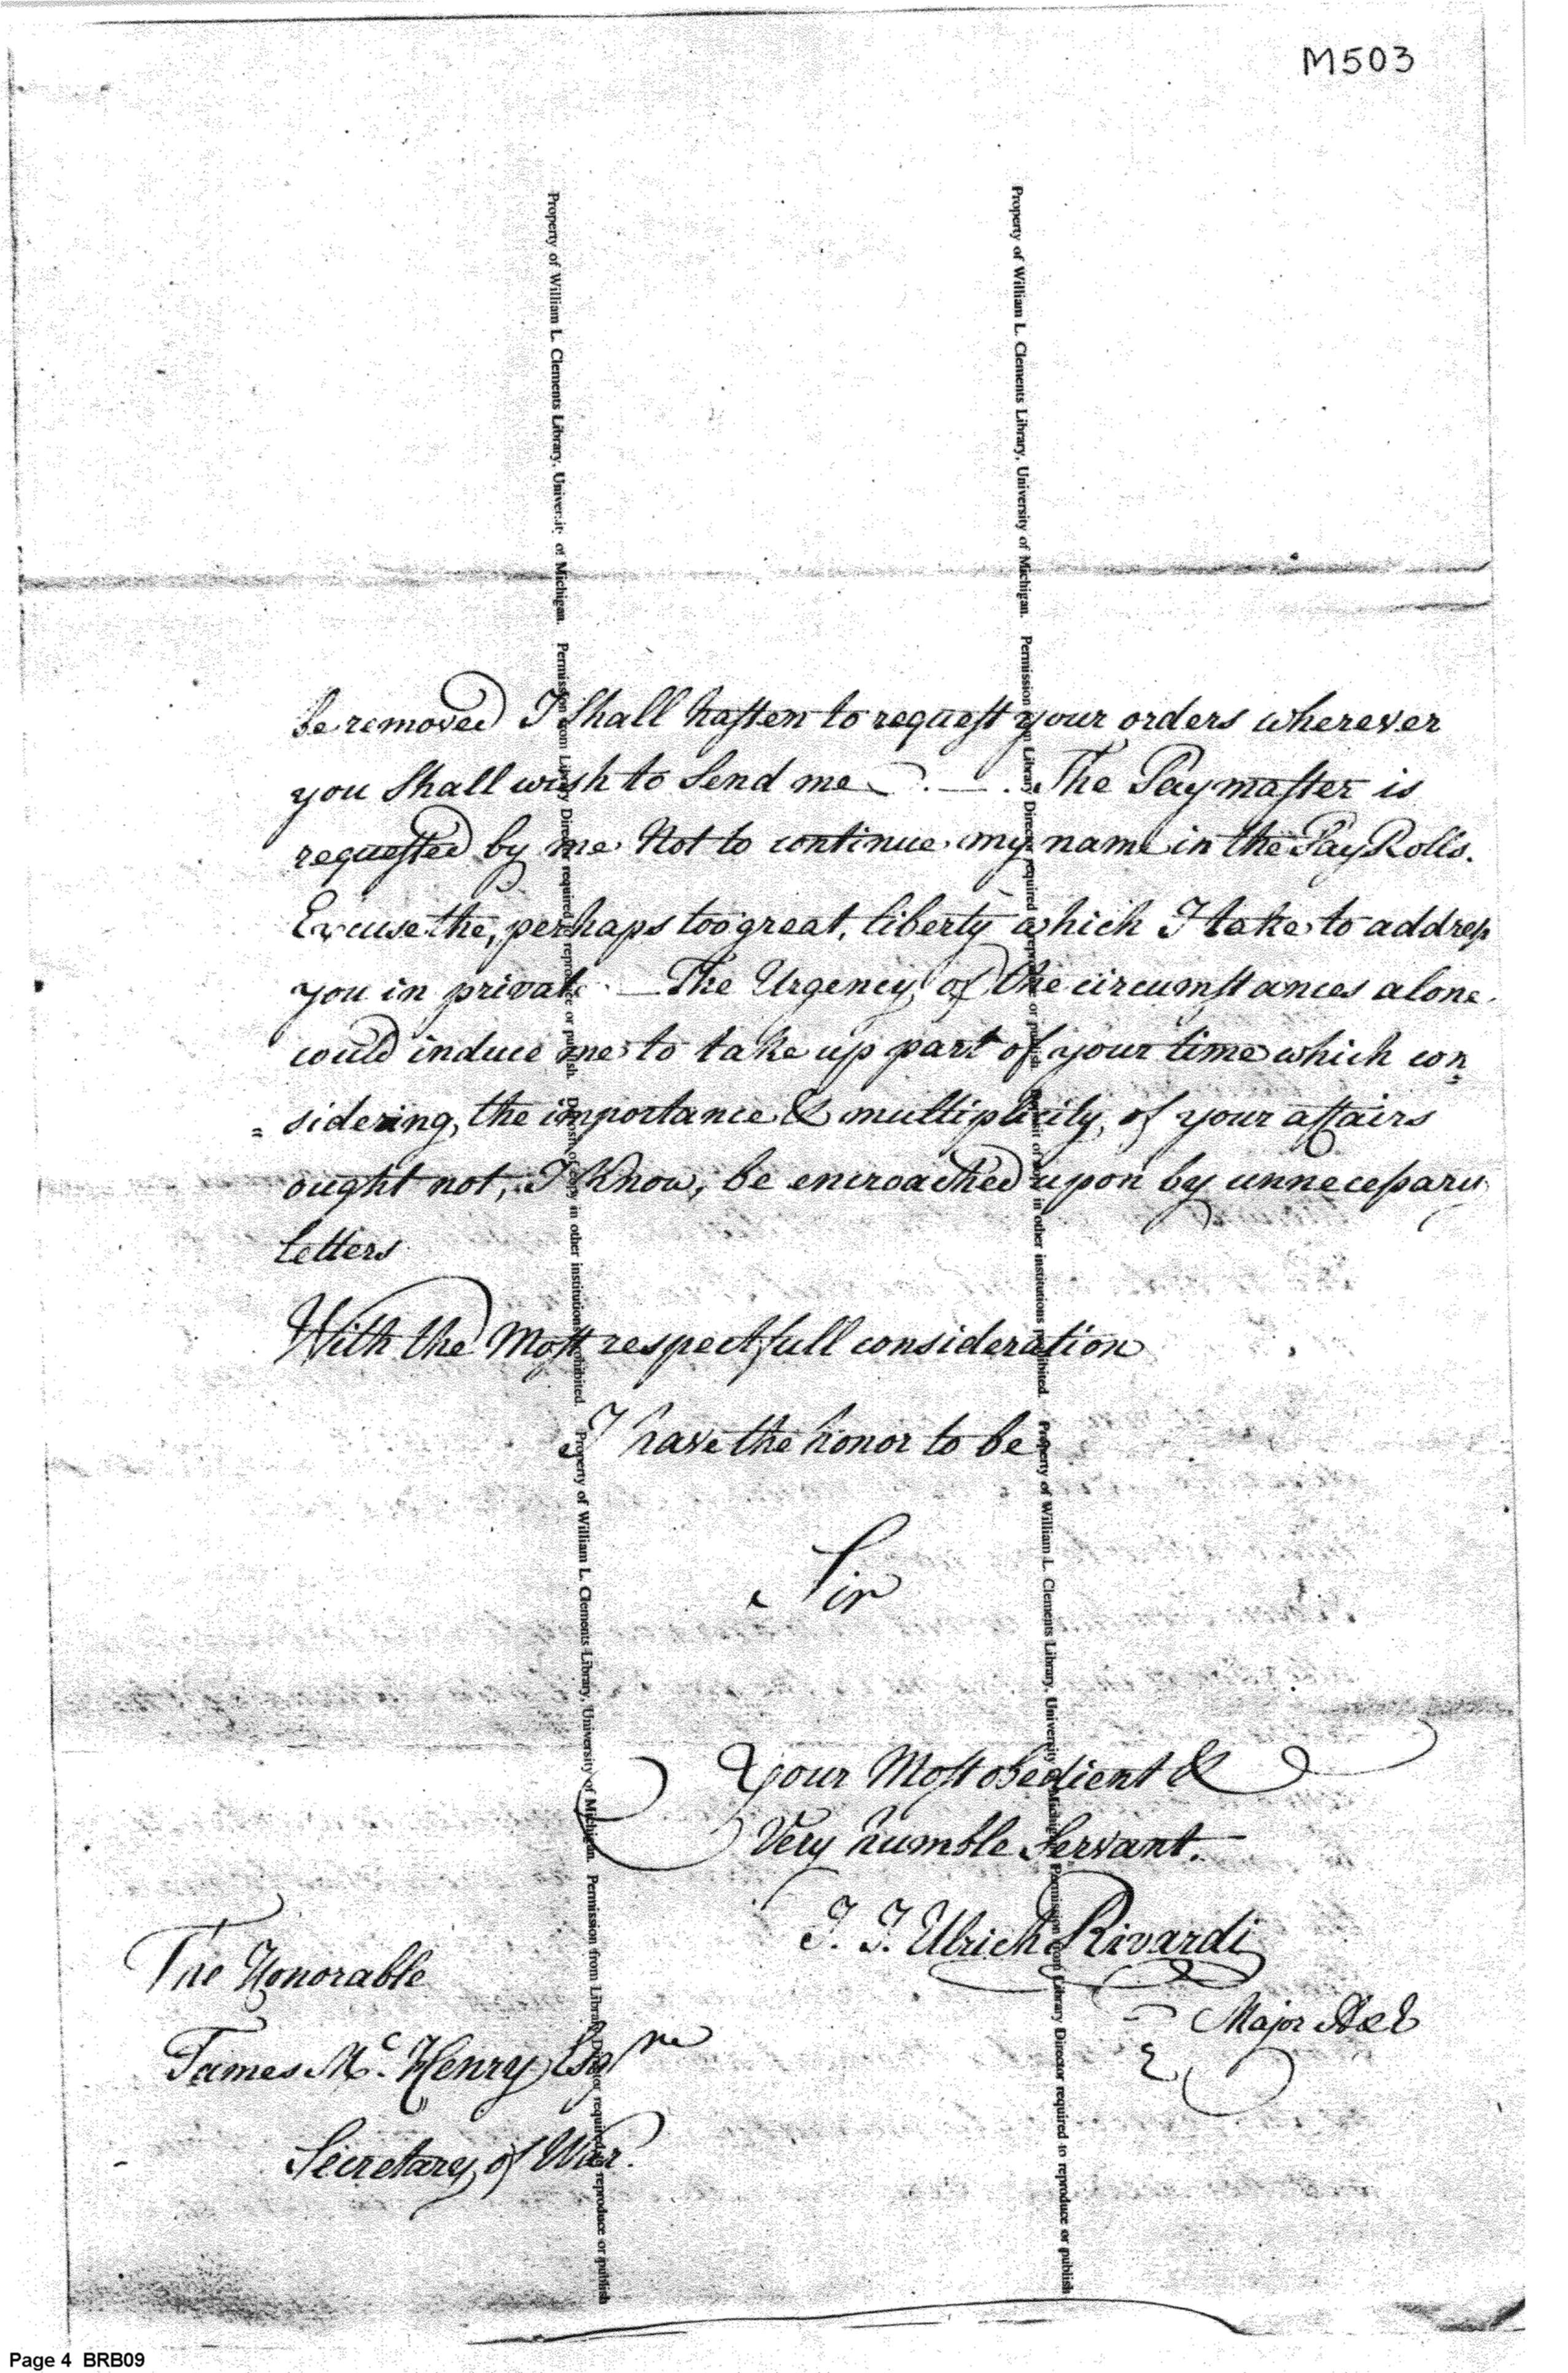 M503
be removed I Shall hasten to request your orders wherever
you Shall wish to Send me . — . The Paymaster is
requested by me Not to continue my name in the Pay Rolls.
Excuse the, perhaps too great, liberty which I take to address
you in private . — The Urgency of the circumstances alone
could induce me to take up part of your time which con=
=sidering, the importance & multiplicity, of your affairs
ought not, I Know, be encroached upon by unnecessary
letters
With the Most respectfull consideration
I have the honor to be
Sir
Your Most obedient &
Very humble Servant.
J. J. Ulrich Rivardi
Major A & E
The Honorable
James Mc. Henry Esqre
Secretary of War.
Property of William L. Clements Library, University of Michigan. Permission from Library Director required to reproduce or publish. Deposit of copy in other institutions prohibited. Property of William L. Clements Library, University of Michigan. Permission from Library Director required to reproduce or publish
Property of William L. Clements Library, University of Michigan. Permission from Library Director required to reproduce or publish. Deposit of copy in other institutions prohibited. Property of William L. Clements Library, University of Michigan. Permission from Library Director required to reproduce or publish
Page 4 BRB09